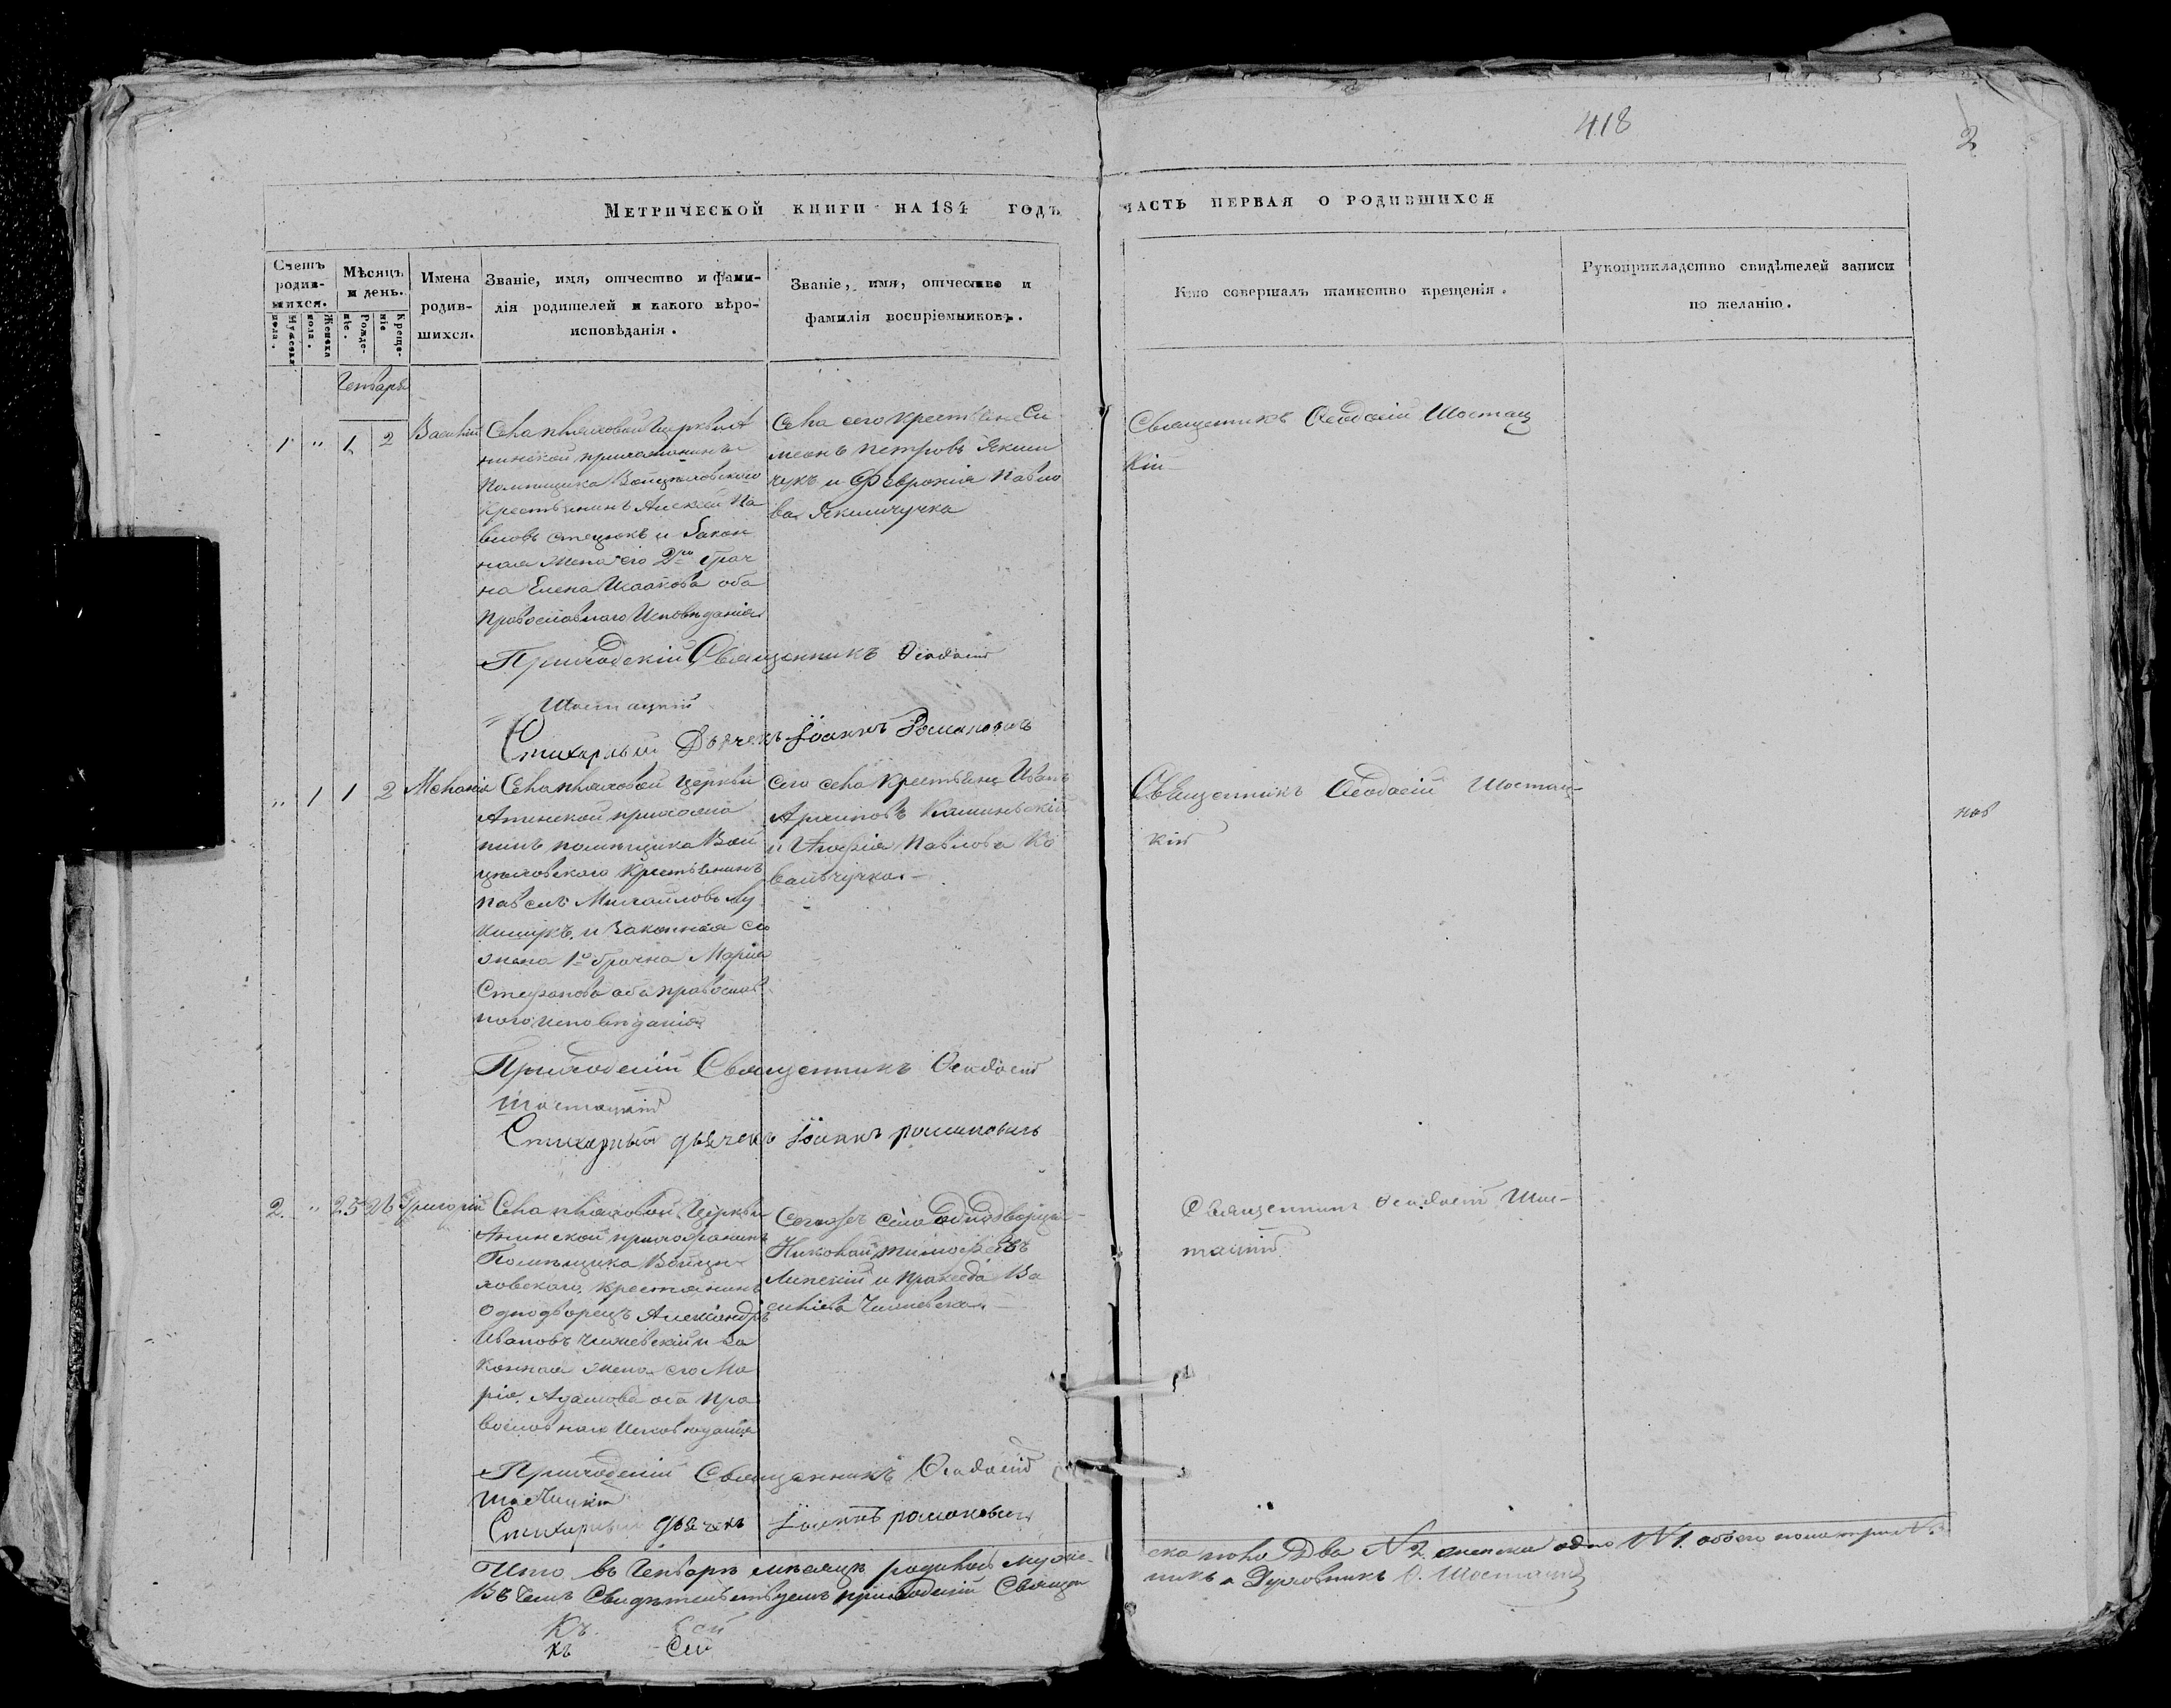 418
2
Метрической книги на 184 годъ
часть первая о родившихся
Счетъ родив-шихся.
Мужеска пола.
Женска пола.
Мѣсяцъ и день.
Рожде-ніе.
Креще-ніе
Имена
родив-
шихся.
Званіе, имя, отчество и фами-
лія родителей и какого вѣро-
исповѣданія.
Званіе, имя, отчество и
фамилія воспріемниковъ.
Кто совершалъ таинство крещенія.
Рукоприкладство свидѣтелей записи
по желанію.
Генваръ
1 " 1 2 Василій
Села церкви
нинской прихожанинъ
Помѣщика
крестьянинъ Алексей Па
вловъ Стецюкъ и Закон
ная Жена его 2мъ брач
на Елена Исаакова оба
Православнаго Исповѣданія
Села сего крестьяне Си
меонъ Петровъ Яким
чукъ и Феврония Павло
ва Якимчучка
Священникъ Ѳеодосій Шостац
кій
Приходскій Священникъ Ѳеодосій
Шостацкій
Стихарный Дьячекъ Іоаннъ Романовичъ
" 1 1 2 Меланія
Села церкви
Анинской прихожа
нинъ помѣщика Вой
цѣховского крестьянинъ
Павелъ Михайловъ Лу
и Законная его
жена 1о брачна Марія
Стефанова оба православ
ного исповѣданія
Сего села крестьяне Иванъ
Архиповъ Каминьскій
и Агафія Павлова Ко
вальчучка
Священникъ Ѳеодосій Шостац-
кій
Приходскій Священникъ Ѳеодосій
Шостацкій
Стихарный дьячекъ Іоаннъ Романовичъ
2 " 25 26 Григорій
Села Церкви
Анинской прихожанинъ
Помѣщика Войцѣ
ховского крестянинъ
Однодворецъ Александръ
Ивановъ Чижевскій и За
конная жена его Ма
рія Адамова оба Пра
вославнаго Исповѣданія
Сегожъ села Однодворцы
Николай Тимофѣевъ
Липскій и Пракседа Ва
силіева Чижевская
Священникъ Ѳеодосій Шос-
тацкій
Приходскій Священникъ Ѳеодосій
Шостацкій
Стихарный дьячекъ Іоаннъ Романовичъ
Итго въ Генварѣ мѣсяцѣ родилось муже-
ска пола Два №2. женска одно №1. обоего пола три №3
Въ чемъ свидѣтельствуетъ приходскій Священ
никъ и Духовникъ Ѳ. Шостацкій